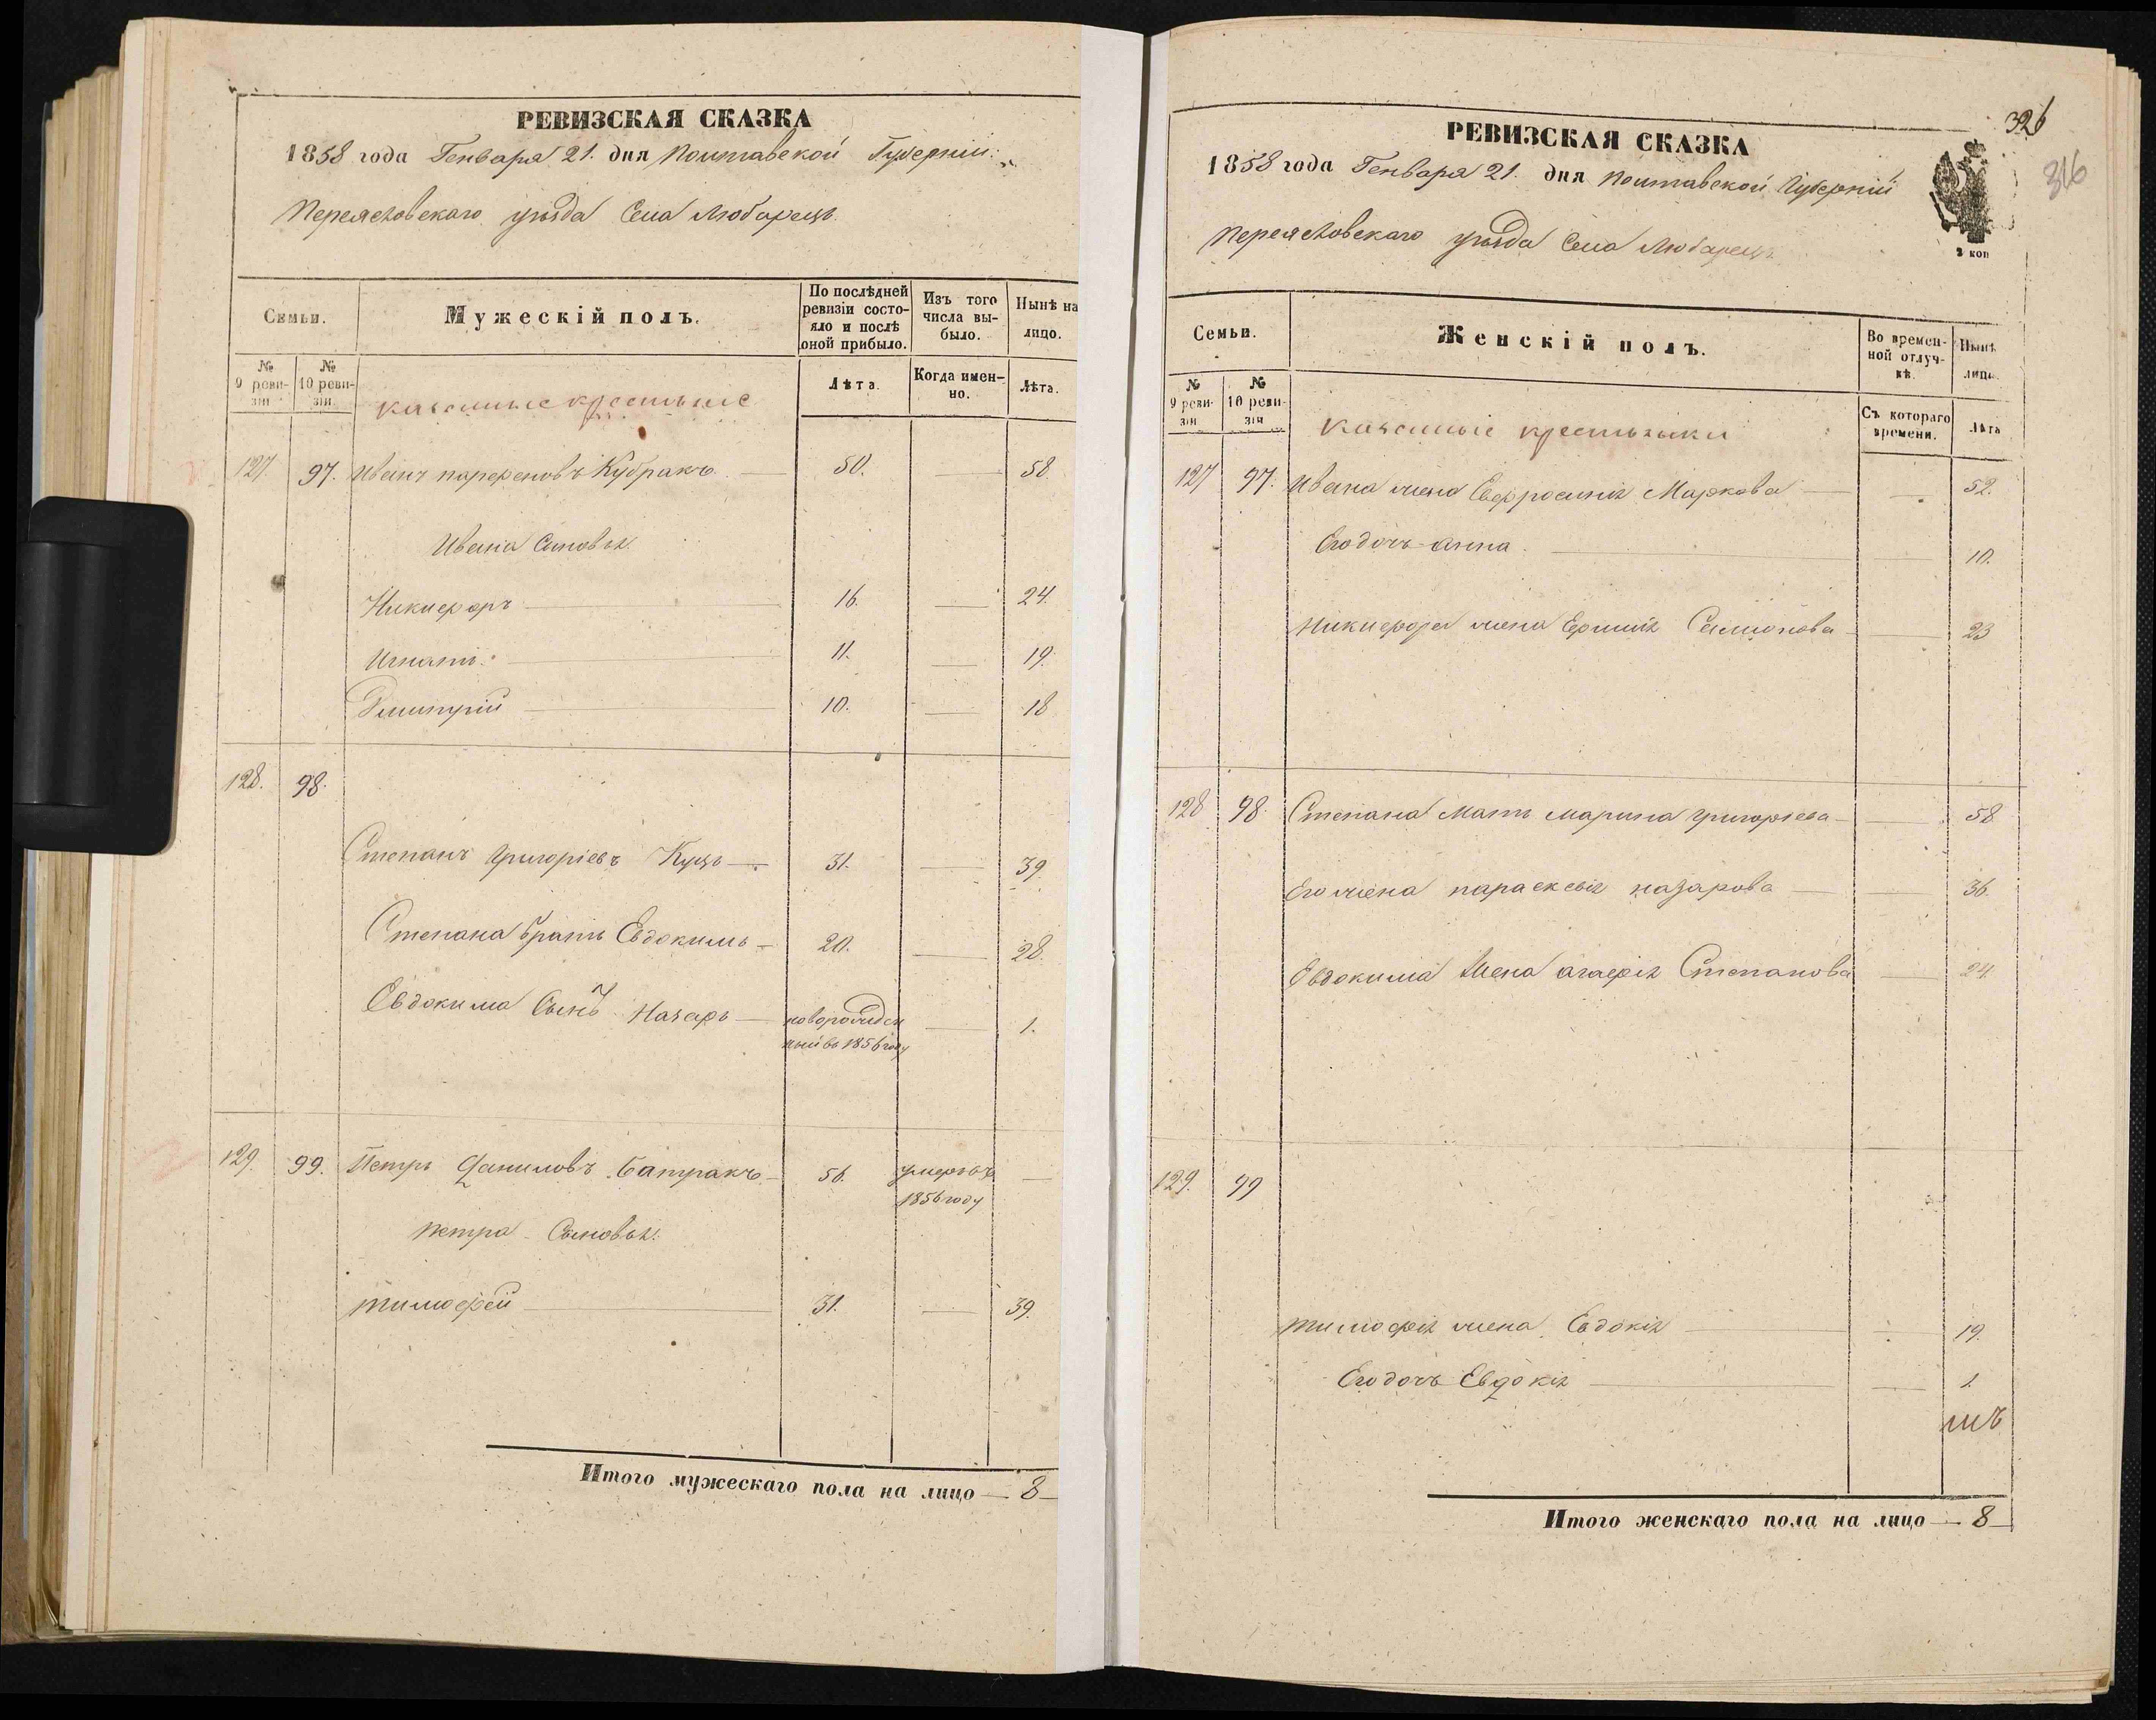 РЕВИЗСКАЯ СКАЗКА
1858 года Генваря 21. дня Полтавской Губерніи
Переясловскаго уѣзда Села Любарецъ
Семьи.
Мужескій полъ.
По послѣдней ревизіи состояло и послѣ оной прибыло.
Изъ того числа выбыло.
Нынѣ на лицо.
№ 9 ревизіи
№ 10 ревизіи
Лѣта.
Когда именно.
Лѣта.
казенные крестьяне
127. 97. Иванъ парфеновъ Кубракъ 50. 58
Ивана Сыновья
Никифоръ 16. 24.
Игнатъ 11. 19.
Дмитрій 10. 18
128. 98.
Степанъ Григоріевъ Куцъ 31. 39.
Степана братъ Евдокимъ 20. 28.
Евдокима Сынъ Назаръ новорожден 1.
ный въ 1856 году
129. 99. Петръ Даниловъ Батракъ 56. умеръ въ
1856 году
Петра Сыновья
тимофей 31. 39.
Итого мужескаго пола на лицо 8
326
316
РЕВИЗСКАЯ СКАЗКА
1858 года Генваря 21. дня Полтавской Губерніи
Переясловскаго уѣзда Села Любарецъ
коп
Семьи.
Женскій полъ.
Во временной отлучкѣ.
Нынѣ лицо.
№ 9 ревизіи
№ 10 ревизія
Съ котораго времени.
Лѣта
казенные крестьянки
127 97. Ивана жена Евфросинія Маркова 52.
Его дочь анна 10.
Никифора жена Ефимія Самионова 23
128 98. Степана мать марина григорьева 58
Его жена параскевія назарова 36.
Евдокима жена агафія Степанова 24.
129. 99
тимофія жена Евдокія 19.
Его дочь Евдокія 1.
Итого женскаго пола на лицо 8